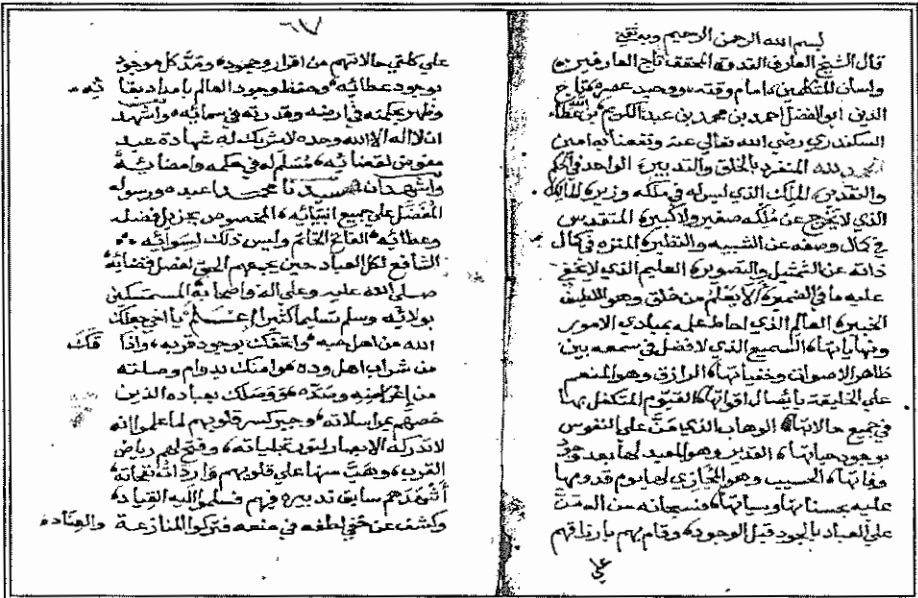 بسم الله الرحمن الرحيم وبه ثقتي
قال الشيخ العارف القدوة المحقق تاج العارفين
ولسان المتكلمين امام وقته ووحيد عصره تاج
الدين ابو الفضل احمد بن محمد بن عبد الكريم بن عطاء
السكندري رضي الله تعالى عنه ونفعنا به امين
الحمد لله المنفرد بالخلق والتدبير الواحد في الحكم
والتقدير الملك الذي ليس له في ملكه وزير المالك
الذي لا يخرج عن ملكه صغير ولا كبير المتقدس
في كمال وصفه عن الشبيه والنظير المنزه في كمال
ذاته عن التمثيل والتصوير العليم الذي لا يخفى
عليه ما في الضمير الا يعلم من خلق وهو اللطيف
الخبير العالم الذي احاط علمه بمبادي الامور
ونهاياتها السميع الذي لا فضل في سمعه بين
ظاهر الاصوات وخفياتها الرازق وهو المنعم
على الخليقة بايصال اقواتها القيوم المتكفل بها
في جميع حالاتها الوهاب الذي من على النفوس
بوجود حياتها القدير وهو المعيد لها بعد وجود
وفاتها الحسيب وهو المجازي لها يوم قدومها
عليه بحسناتها وسياتها فسبحانه من اله من
على العباد بالجود قبل الوجود وقام بهم بارزاقهم
على
٦٧
على كلتي حالاتهم من اقرار وجحود ومد كل موجود
بوجود عطائه وحفظ وجود العالم بامداد بقائه
وظهر بحكمته في ارضه وقدرته في سمائه واشهد
ان لا اله الا الله وحده لا شريك له شهادة عبد
مفوض لقضائه مسلم له في حكمه وامضائه
واشهد ان سيدنا محمدا عبده ورسوله
المفضل على جميع انبيائه المخصوص بجزيل فضله
وعطائه الفاتح الخاتم وليس ذلك لسوائه
الشافع لكل العباد حين يجمعهم الحق لفصل قضائه
صلى الله عليه وعلى اله واصحابه المستمسكين
بولائه وسلم تسليما كثيرا اعلم يا اخي جعلك
الله من اهل حبه واتحفك بوجود قربه واذاقك
من شراب اهل وده وامنك بدوام وصلته
من اعراضه وصده ووصلك بعباده الذين
خصهم بمراسلاته وجبر كسر قلوبهم لما علموا انه
لا تدركه الابصار بنور تجلياته وفتح لهم رياض
القرب وهب منها على قلوبهم واردات نفحاته
اشهدهم سابق تدبيره فيهم فسلموا اليه القياد
وكشف عن خفي لطفه في منعه فتركوا المنازعة والعناد